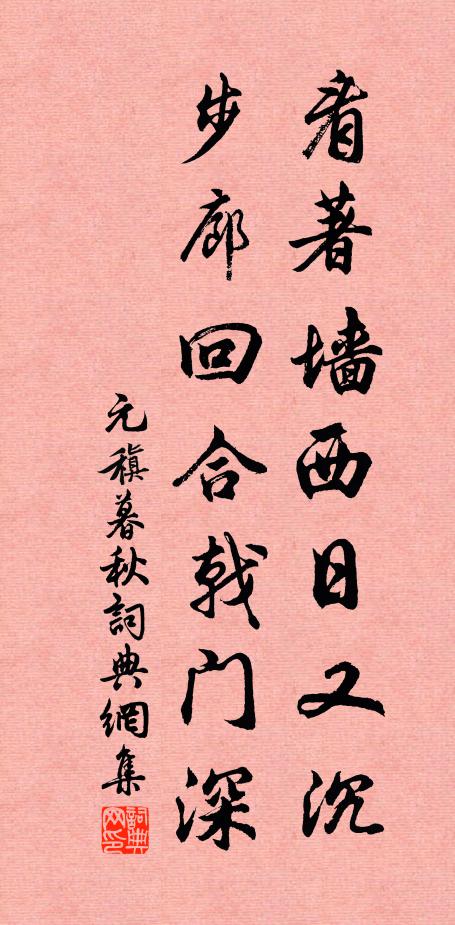 看著墙西日又沉
步廊回合戟门深
元稹暮秋詞典網集
詞典网印